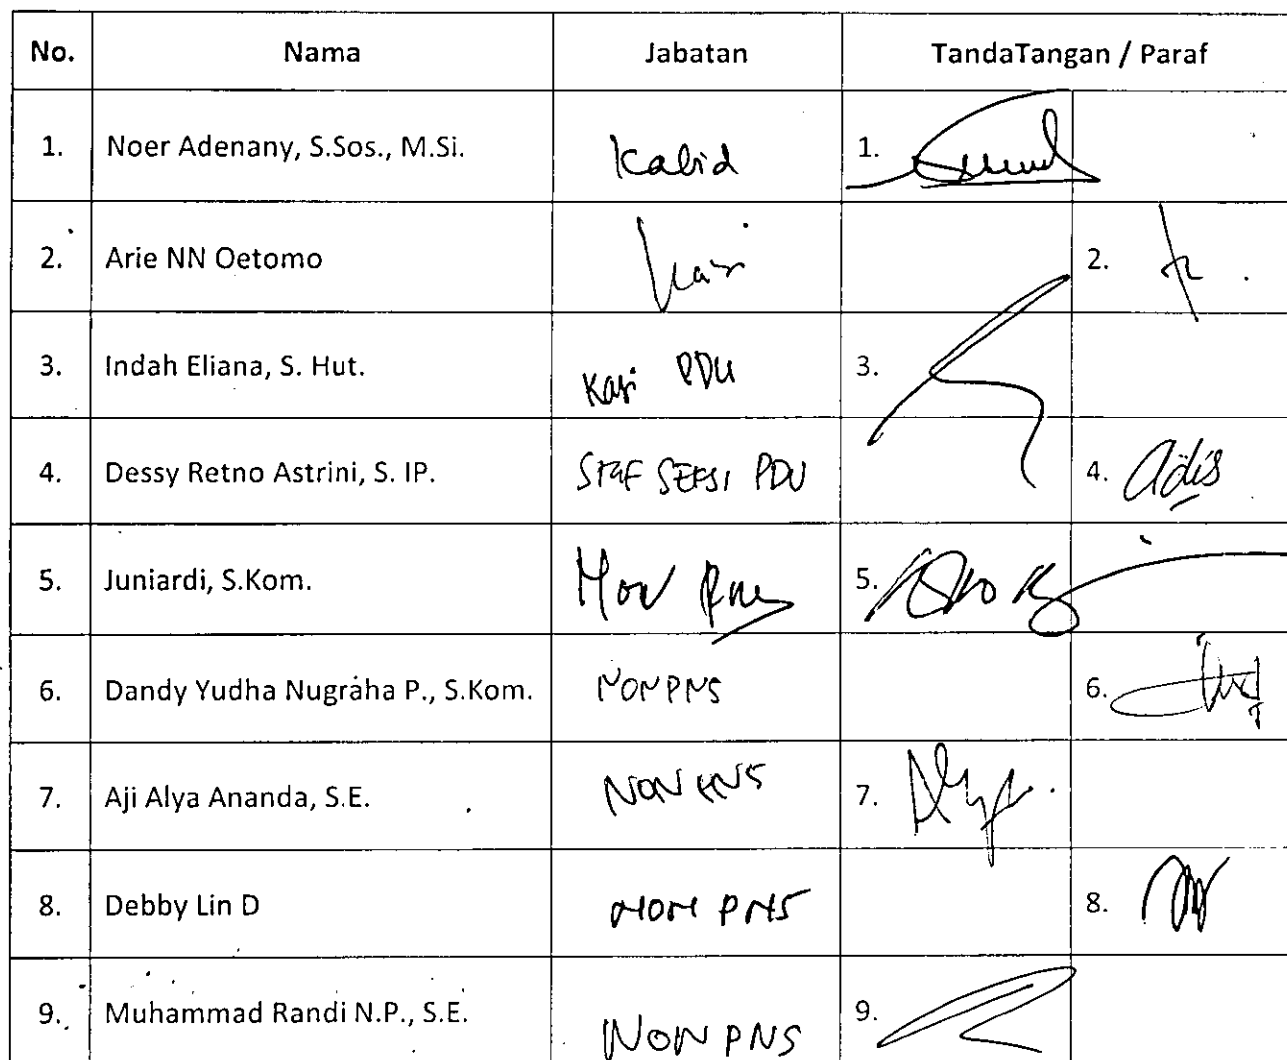 No. Nama Jabatan TandaTangan / Paraf
1. Noer Adenany, S.Sos., M.Si. Kabid 1.
2. Arie NN Oetomo Kasi 2.
3. Indah Eliana, S. Hut. Kasi PDU 3.
4. Dessy Retno Astrini, S. IP. STAF SEKSI PDU 4. Adis
5. Juniardi, S.Kom. Non PNS 5.
6. Dandy Yudha Nugraha P., S.Kom. NON PNS 6.
7. Aji Alya Ananda, S.E. NON PNS 7.
8. Debby Lin D NON PNS 8.
9. Muhammad Randi N.P., S.E. NON PNS 9.